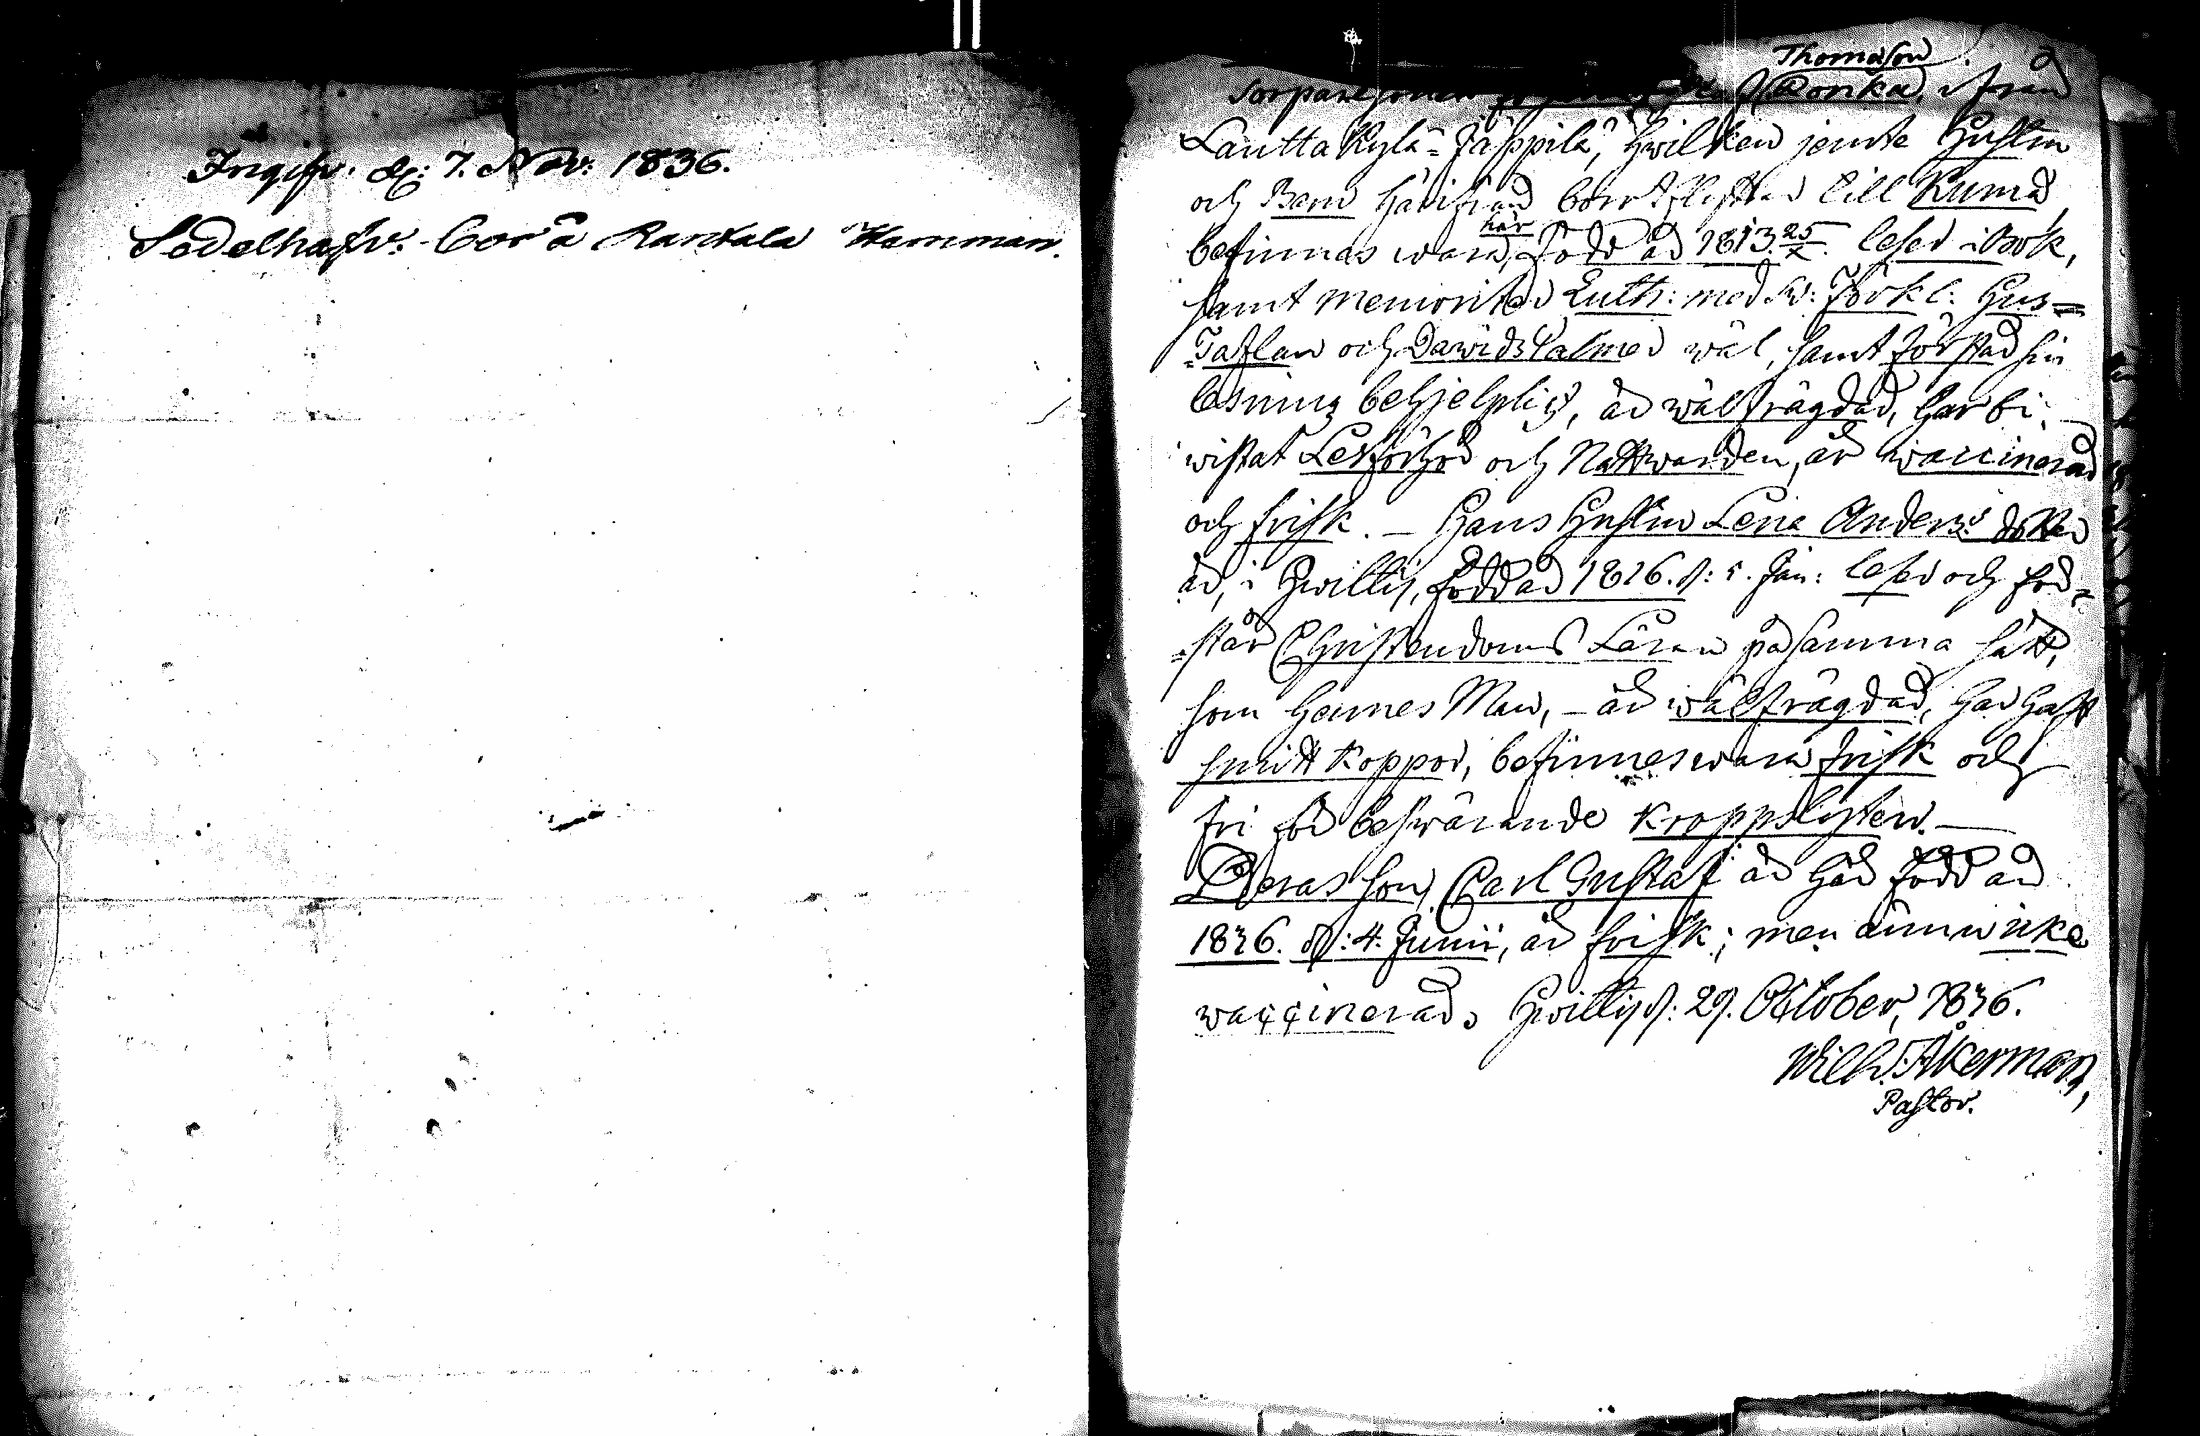 Ingifv. d: 7. Nov: 1836.
Sedelhafv: bor å Rankala Hemman.
Thomasson
Torparesonen Ronka, ifrån
Lauttakylä-Jäppilä, hwilken jemte Hustru
och Barn härifrån bortflyttar till Kumo
här
befinnes wara, född år 1813 25/X. läser i Bok,
samt memoriter Luth: med Sv: Förkl: Hus-
-Taflan och Davids Psalmer wäl, samt förstår sin
läsning behjelplig, är wälfrägdad, har bi-
wistat Läsförhör och Nattwarden, är waccinerad
och frisk. – Hans Hustru Lena Anders: dotter
är, i Hwittis, född år 1816. d: 5. Jan: läser och för-
-står Christendoms Läran på samma sätt,
som hennes Man, – är wälfrägdad, har haft
smittkoppor, befinnes wara frisk och
fri för beswärande kroppslyten. –
Deras son, Carl Gustaf är här född år
1836. d: 4. Junii, är frisk; men ännu icke
waccinerad. Hwittis d: 29. October, 1836.
Wilh. Åkerman,
Pastor.